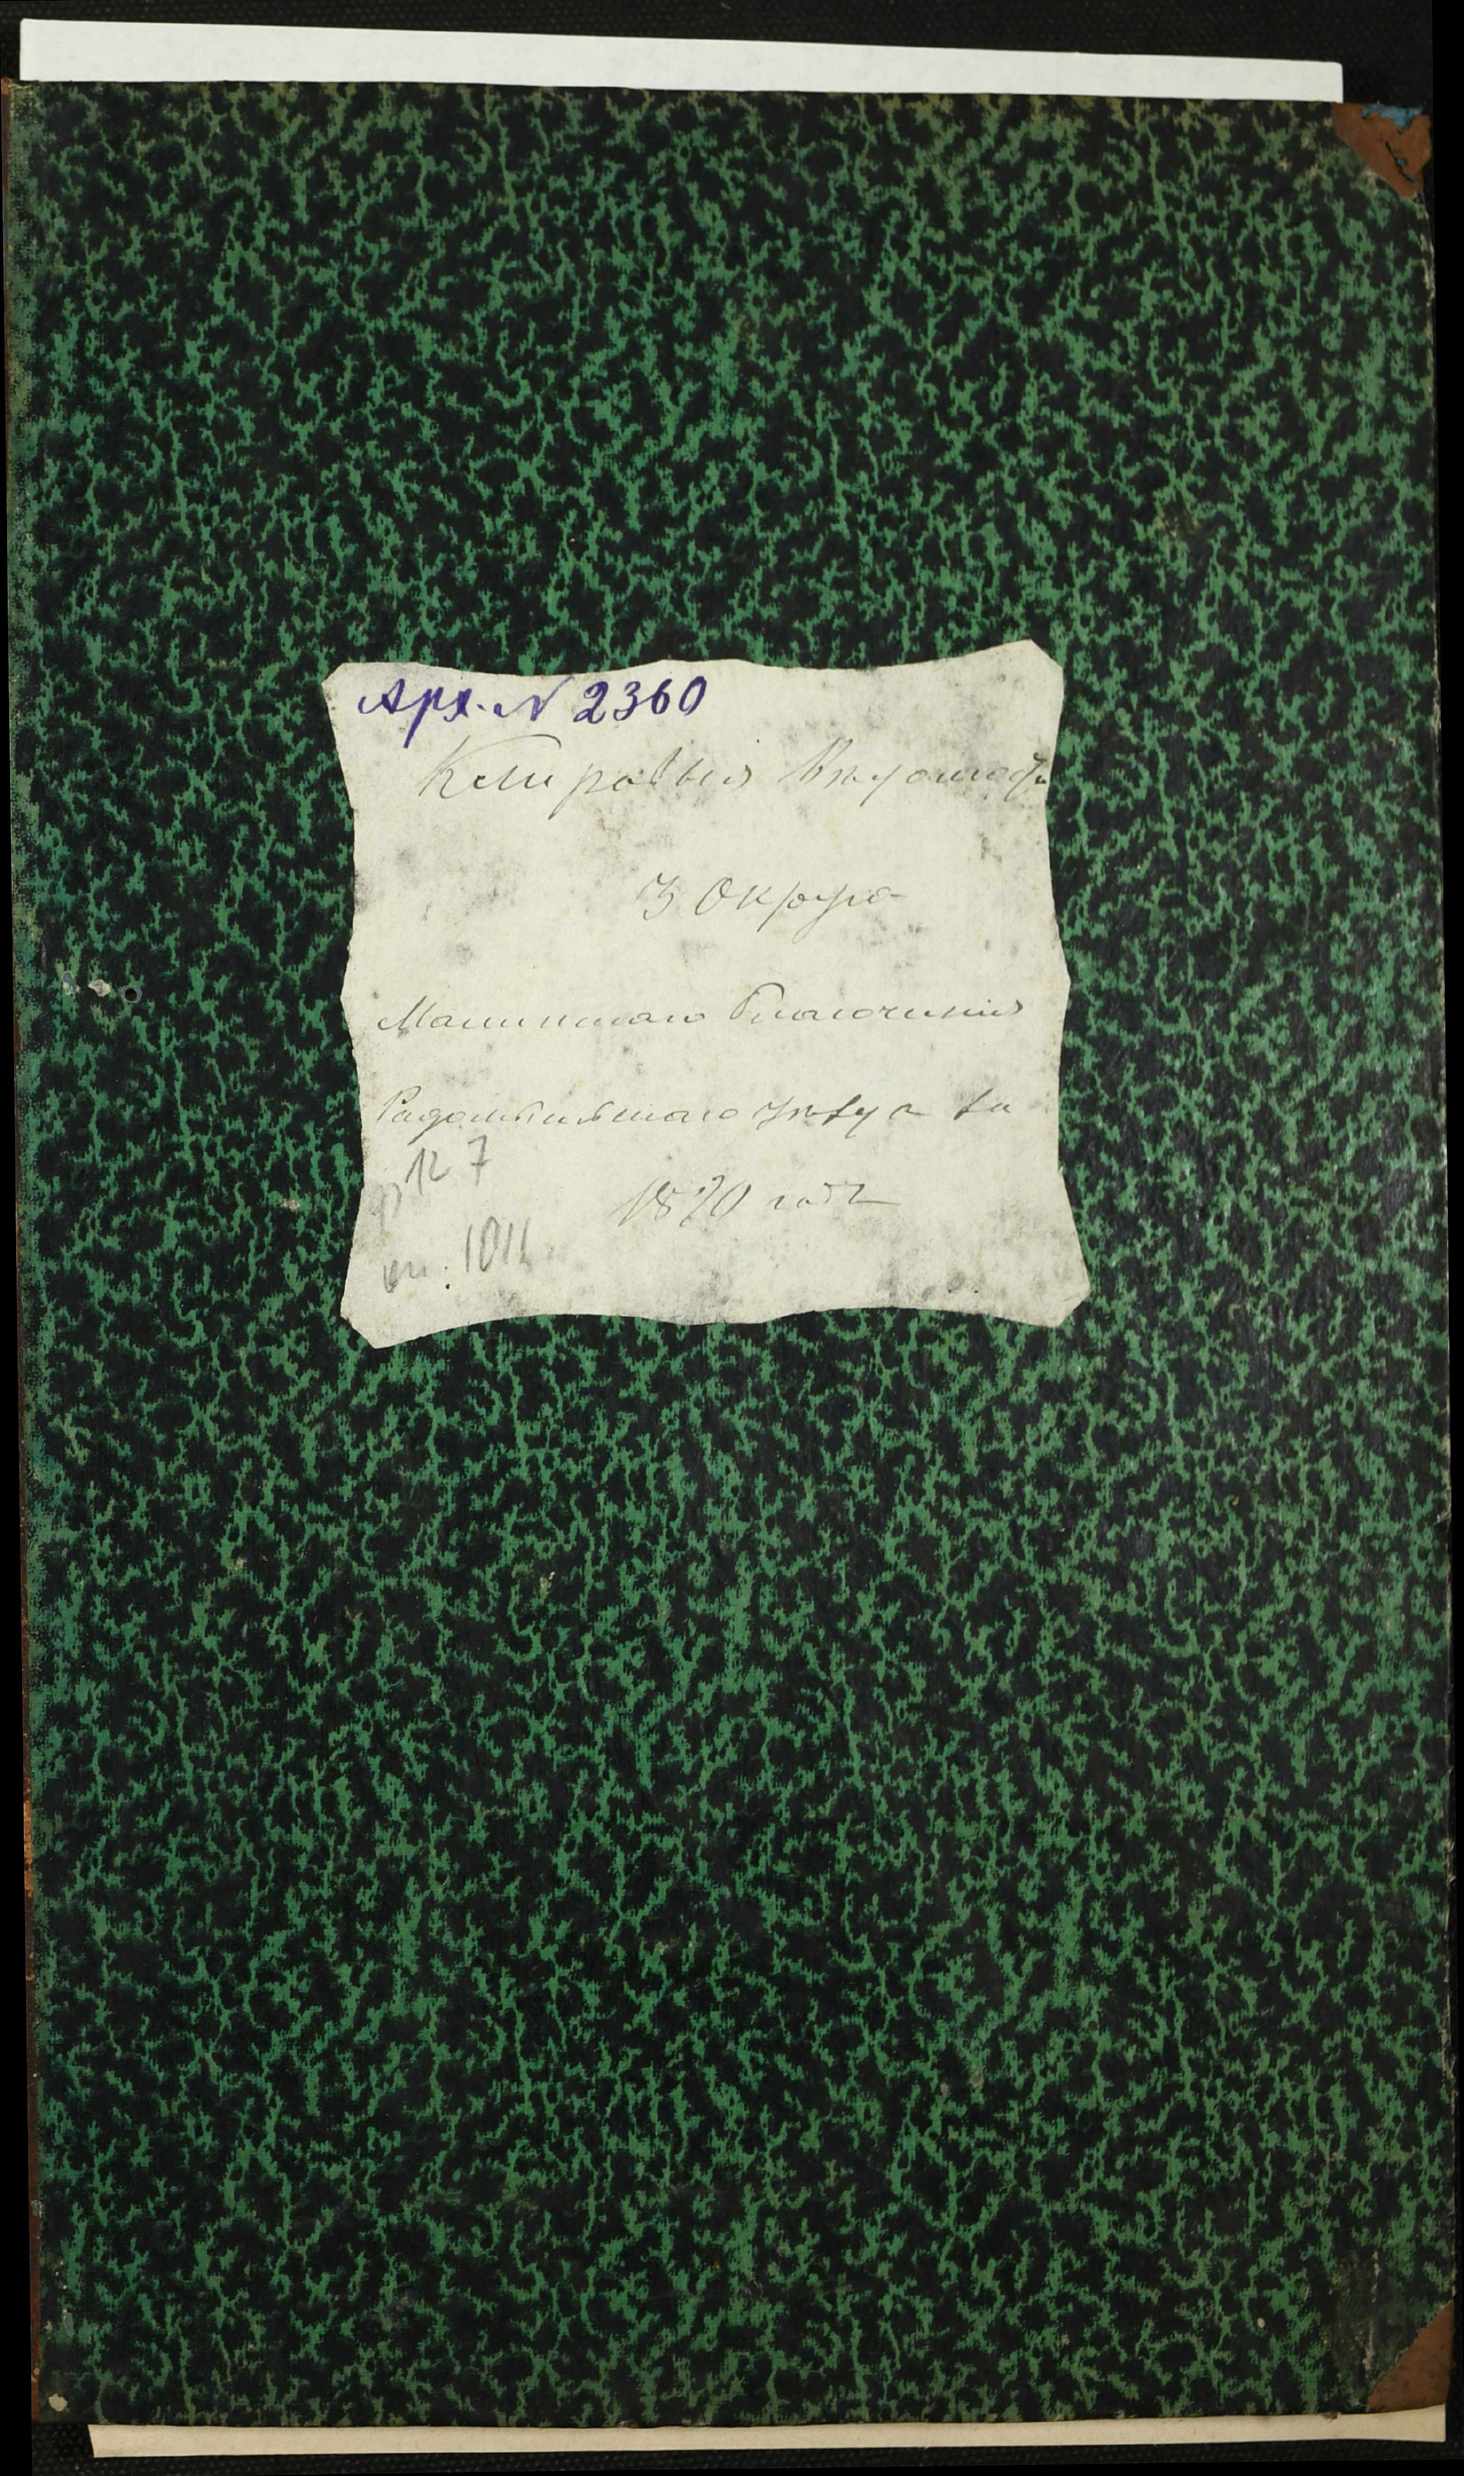 Арх. N 2360
Клировыя Вѣдомости
3 Округа
Малинскаго Благочинія
Радомысльскаго Уѣзда за
1870 годъ
ф 127
оп. 1011